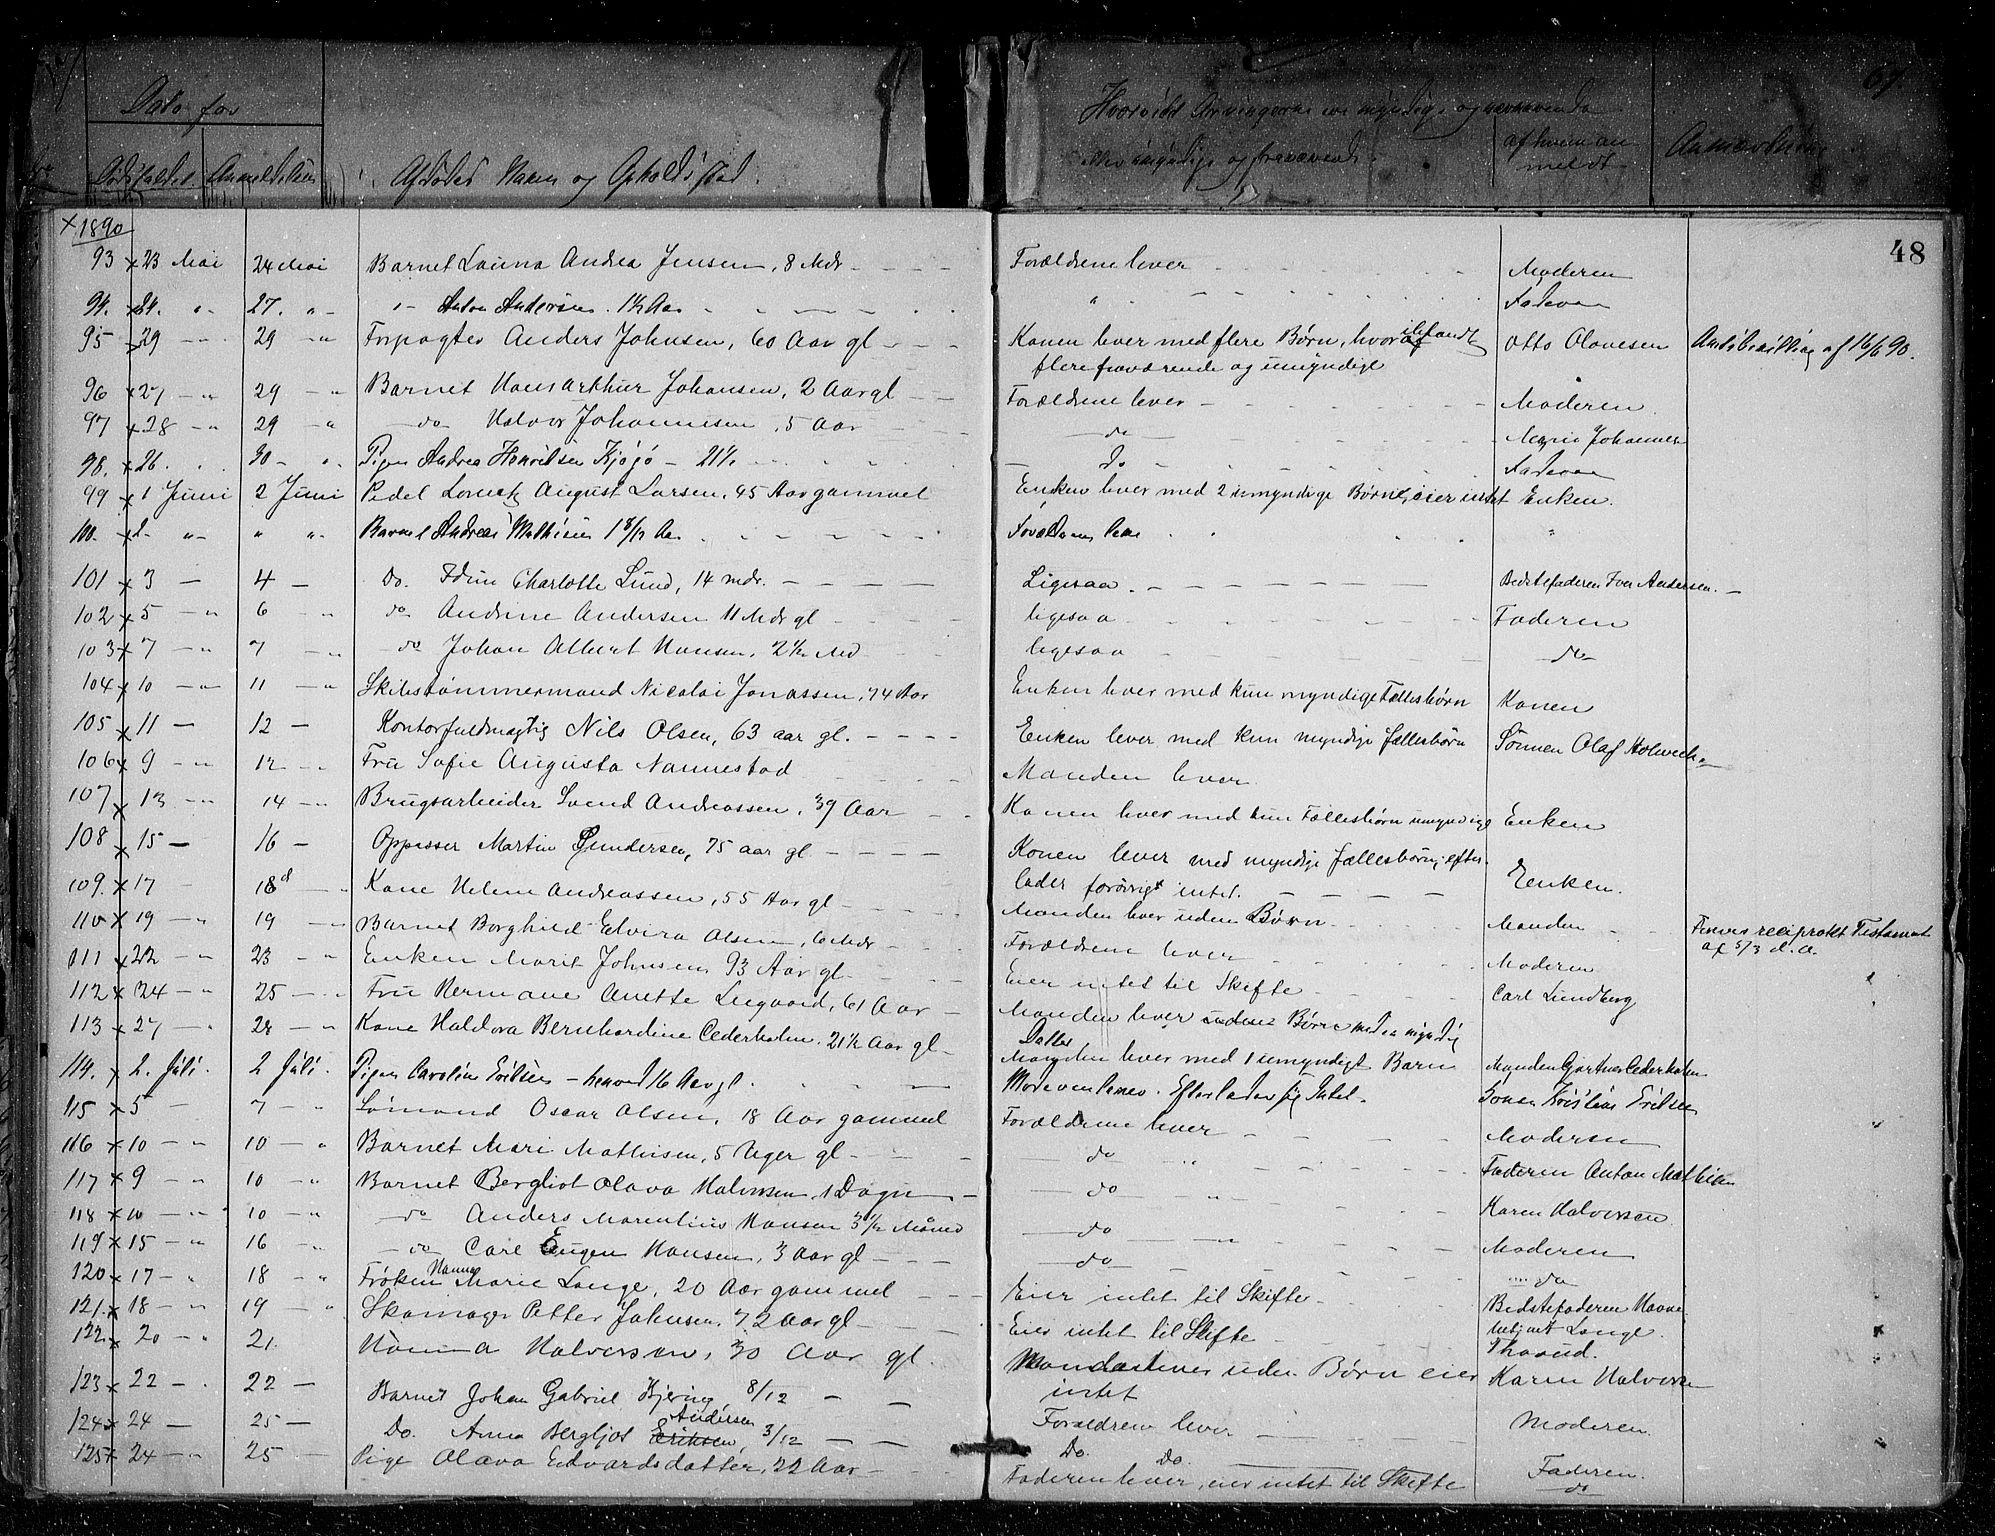 Dato for
Dødsfaldet Anmeldelsen Afdødes Navn og Opholdssted.
Hvorvidt Arvingerne ere myndige og nærværende
eller umyndige og fraværende.
af hvem anmeldt
Anmærkning
67.
48
1890
93 x 23 Mai 24 Mai Barnet Launa Andrea Jensen, 8 Mdr Forældrene lever Moderen
94. x 24. " 27. " " Anton Andersen. 1½ Aar " Faderen
95 x 29 " 29 " Forpagter Anders Johnsen, 60 Aar gl Konen lever med flere Børn, hvoraf Otto Olavesen Amtsbevilling af 16/6 90.
flere fraværende og umyndige
96 x 27 " 29 " Barnet Hans Arthur Johansen, 2 Aar gl Forældrene lever Moderen
97 x 28 " 29 " do Halvor Johannesen, 5 Aar do Marie Johannes
98. x 26. " 30 " Pigen Andrea Henriksen Kjøjø 21½ Do Faderen
99 x 1 Juni 2 Juni Pedel August Larsen, 45 Aar gammel Enken lever med 2 umyndige Børn, eier intet Enken.
100. x 2 " " " Barnet Andreas Mathisen 1 8/12 Aar Forældrene lever "
101 x 3 4 Do. Charlotte Lund, 14 mdr. Ligesaa Bedstefaderen Iver Andersen.
102 x 5 " 6 " do Andrine Andersen 11 Mdr gl ligesaa Faderen
103 x 7 " 7 " do Johan Albert Hansen, 2½ Md ligesaa do
104 x 10 " 11 " Skibstømmermand Nicolai Jonassen, 74 Aar Enken lever med kun myndige Fællesbørn Konen
105 x 11 12 Kontorfuldmægtig Nils Olsen, 63 aar gl. Enken lever med kun myndige fællesbørn Sønnen Olaf Holweck
106 x 9 " 12 " Fru Sofie Augusta Nannestad Manden lever
107 x 13 " 14 " Brugsarbeider Svend Andreassen, 39 Aar Konen lever med kun Fællesbørn umyndige Enken
108 x 15 16 Oppasser Martin Gundersen, 75 aar gl Konen lever med myndige fællesbørn, efter-
lader forøvrigt intet. Enken.
109. x 17 18 Kone Helene Andreassen, 55 Aar gl Manden lever uden Børn Manden Finnes reciprokt Testament
af 5/3 d.a.
110 x 19 " 19 " Barnet Borghild Elvira Olsen, 6 Mdr Forældrene lever Moderen
111 x 22 " 23 " Enken Marit Johnsen 93 Aar gl Eier intet til Skifte Carl Lundberg
112 x 24 " 25 " Fru Hermane Anette Lugaard, 61 Aar Manden lever uden Børn med en myndig
Datter
113 x 27 " 28 " Kone Haldora Bernhardine Cederholm. 21½ Aar gl Manden lever med 1 umyndigt Barn Manden Gartner Cederholm
114. x 2. Juli. 2 Juli. Pigen Caroline Eriksen 16 Aar gl. Moderen lever. Efterlader sig Intet. Konen Kristine Eriksen
115 x 5 7 " Sømand Oscar Olsen, 18 Aar gammel Forældrene lever Moderen
116 x 10 " 10 " Barnet Mari Mathisen, 5 Uger gl do " Faderen Anton Mathisen
117 x 9 " 10 " Barnet Bergliot Olava Halvorsen, 1 Døgn do " Karen Halvorsen
118 x 10 " 10 " do Anders Marentius Hansen 3½ Måned do " Moderen
119 x 15 " 16 " do Carl Eugen Hansen, 3 Aar gl do do
120 x 17 " 18 " Frøken Hanna Marie Lange, 20 Aar gammel Eier intet til Skifte Bedstefaderen
Lange.
121. x 18 " 19 " Skomager Petter Johnsen, 72 Aar gl Eier intet til Skifte Thorud.
122. x 20 " 21. Hanna Halvorsen, 30 Aar gl. Manden lever uden Børn eier Karen Halvorsen
intet
123 x 22 " 22 Barnet Johan Gabriel Hjering, 8/12 Forældrene lever Moderen.
124 x 24 25 Do. Anna Bergljot Eriksen Andersen, 3/12 Do. Do. Faderen.
125 x 24 " 25 Pige Olava Edvardsdatter, 22 Aar Faderen lever, eier intet til Skifte do